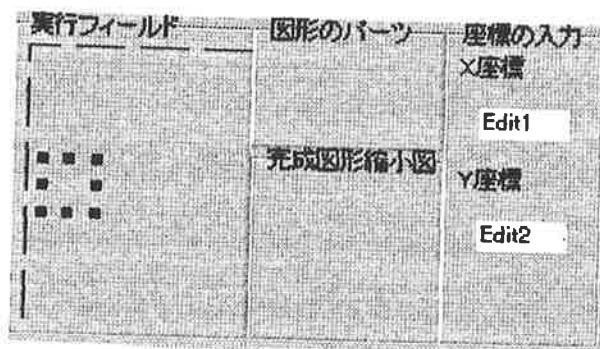 実行フィールド
図形のパーツ
完成図形縮小図
座標の入力
X座標
Edit1
Y座標
Edit2